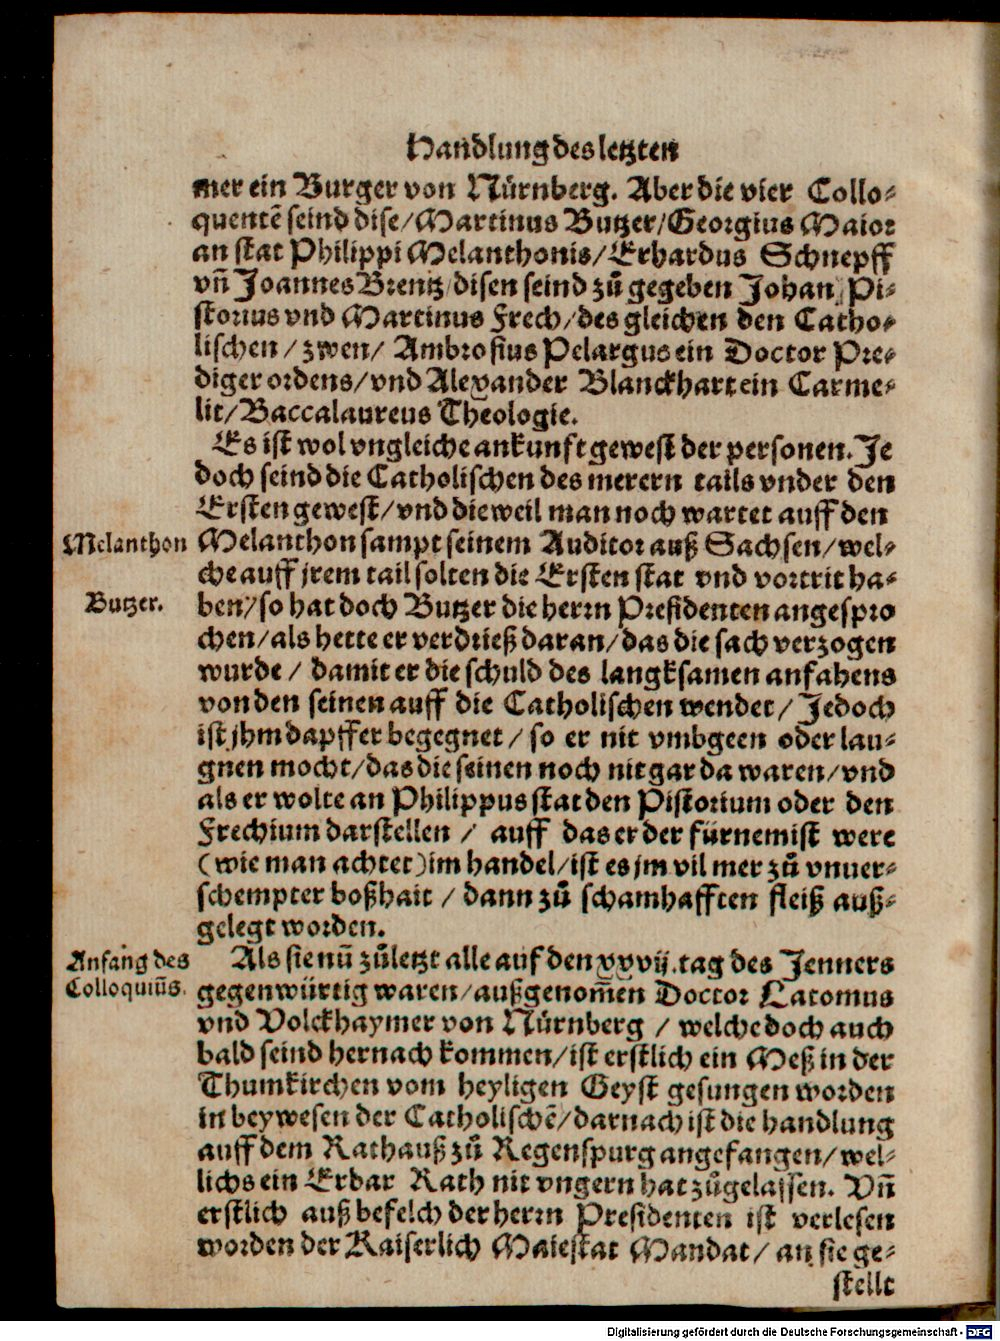 Handlung des letzten
mer ein Burger von Nürnberg. Aber die vier Collo⸗
quentē seind dise/ Martinus Butzer/ Georgius Maior
an stat Philippi Melanthonis/ Erhardus Schnepff
vñ Joannes Brentz/ disen seind zů gegeben Johan Pi⸗
storius vnd Martinus Frech/ des gleichen den Catho⸗
lischen/ zwen/ Ambrosius Pelargus ein Doctor Pre⸗
diger ordens/ vnd Alexander Blanckhart ein Carme⸗
lit/ Baccalaureus Theologie.
Es ist wol vngleiche ankunfft gewest der personen. Je
doch seind die Catholischen des merern tails vnder den
Ersten gewest/ vnd dieweil man noch wartet auff den
Melanthon
Melanthon sampt seinem Auditor auß Sachsen/ wel⸗
che auff jrem tail solten die Ersten stat vnd vortrit ha⸗
Butzer.
ben/ so hat doch Butzer die herrn Presidenten angespro
chen/ als hette er verdrieß daran/ das die sach verzogen
wurde/ damit er die schuld des langksamen anfahens
von den seinen auff die Catholischen wendet/ Jedoch
ist jhm dapffer begegnet/ so er nit vmbgeen oder lau⸗
gnen mocht/ das die seinen noch nit gar da waren/ vnd
als er wolte an Philippus stat den Pistorium oder den
Frechium darstellen/ auff das er der fürnemist were
(wie man achtet) im handel/ ist es jm vil mer zů vnuer⸗
schempter boßhait/ dann zů schamhafften fleiß auß⸗
gelegt worden.
Anfang des
Colloquiūs.
Als sie nū zůletzt alle auf den xxvij. tag des Jenners
gegenwürtig waren/ außgenom̄en Doctor Latomus
vnd Volckhaymer von Nürnberg/ welche doch auch
bald seind hernach kommen/ ist erstlich ein Meß in der
Thumkirchen vom heyligen Geyst gesungen worden
in beywesen der Catholischē/ darnach ist die handlung
auff dem Rathauß zů Regenspurg angefangen/ wel⸗
lichs ein Erbar Rath nit vngern hat zůgelassen. Vñ
erstlich auß befelch der herrn Presidenten ist verlesen
worden der Kaiserlich Maiestat Mandat/ an sie ge⸗
stellt
Digitalisierung gefördert durch die Deutsche Forschungsgemeinschaft - DFG